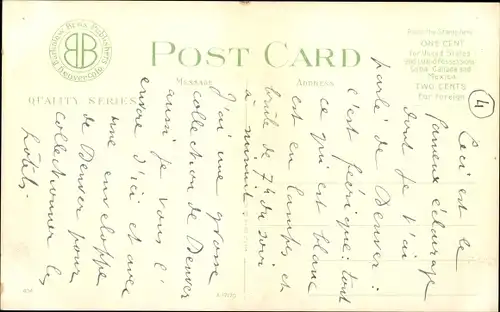 Barkalow Bros. Publishers
Denver, Colo.
BB
POST CARD
Place the Stamp here
ONE CENT
for United States
and Island Possessions
Cuba, Canada and
Mexico
TWO CENTS
For Foreign
MESSAGE
ADDRESS
QUALITY SERIES
4
Ceci est le
fameux éclairage
dont je t'ai
parlé de Denver :
c'est féerique : tout
ce qui est blanc
est en lampes et
brûle de 7h du soir
à minuit
J'ai une grosse
collection de Denver
aussi je vous l'
envoie d'ici et avec
une enveloppe
de Denver pour
collectionner les
hôtels.